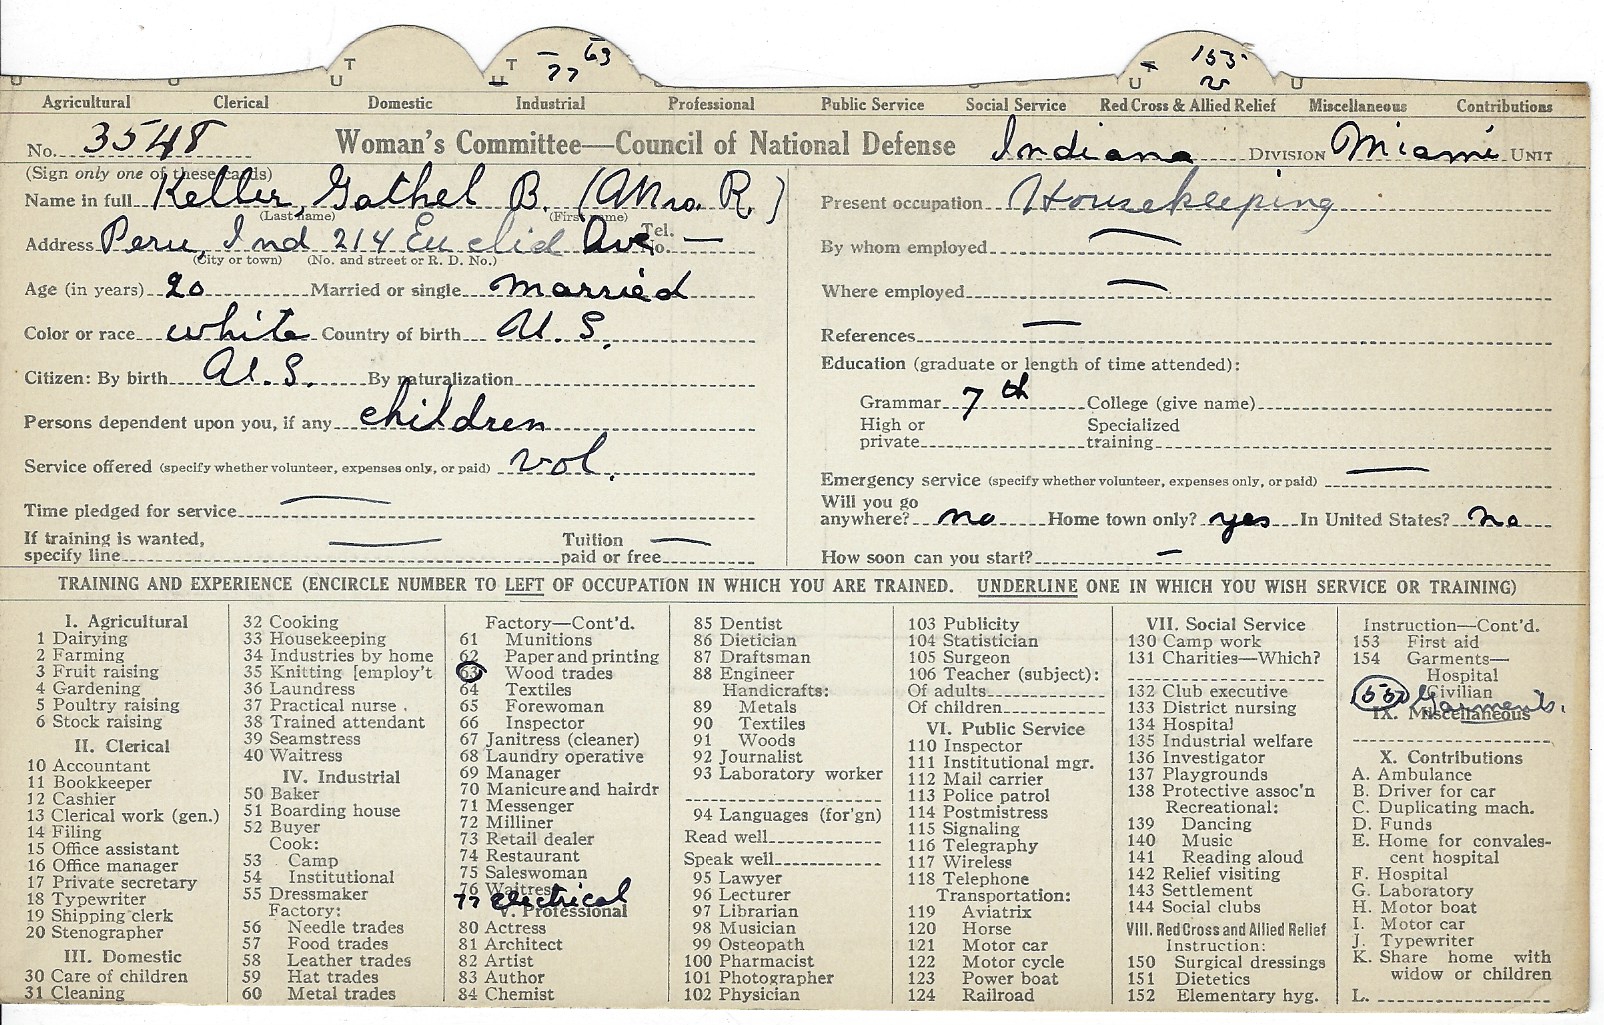 T T 77 63 155
U U U U U U v U
Agricultural Clerical Domestic Industrial Professional Public Service Social Service Red Cross & Allied Relief Miscellaneous Contributions
No. 3548 Woman's Committee—Council of National Defense Indiana DIVISION Miami UNIT
(Sign only one of these cards)
Name in full Keller, Gathel B. (Mrs. R.)
(Last name) (First name)
Address Peru, Ind 214 Euclid Ave Tel. No. —
(City or town) (No. and street or R. D. No.)
Age (in years) 20 Married or single married
Color or race white Country of birth U. S.
Citizen: By birth U. S. By naturalization
Persons dependent upon you, if any children
Service offered (specify whether volunteer, expenses only, or paid) vol.
Time pledged for service —
If training is wanted,
specify line — Tuition paid or free —
Present occupation Housekeeping
By whom employed —
Where employed —
References —
Education (graduate or length of time attended):
Grammar 7th College (give name)
High or private Specialized training
Emergency service (specify whether volunteer, expenses only, or paid) —
Will you go
anywhere? no Home town only? yes In United States? no
How soon can you start? —
TRAINING AND EXPERIENCE (ENCIRCLE NUMBER TO LEFT OF OCCUPATION IN WHICH YOU ARE TRAINED. UNDERLINE ONE IN WHICH YOU WISH SERVICE OR TRAINING)
I. Agricultural
1 Dairying
2 Farming
3 Fruit raising
4 Gardening
5 Poultry raising
6 Stock raising
II. Clerical
10 Accountant
11 Bookkeeper
12 Cashier
13 Clerical work (gen.)
14 Filing
15 Office assistant
16 Office manager
17 Private secretary
18 Typewriter
19 Shipping clerk
20 Stenographer
III. Domestic
30 Care of children
31 Cleaning
32 Cooking
33 Housekeeping
34 Industries by home
35 Knitting [employ't
36 Laundress
37 Practical nurse .
38 Trained attendant
39 Seamstress
40 Waitress
IV. Industrial
50 Baker
51 Boarding house
52 Buyer
Cook:
53 Camp
54 Institutional
55 Dressmaker
Factory:
56 Needle trades
57 Food trades
58 Leather trades
59 Hat trades
60 Metal trades
Factory—Cont'd.
61 Munitions
62 Paper and printing
63 Wood trades
64 Textiles
65 Forewoman
66 Inspector
67 Janitress (cleaner)
68 Laundry operative
69 Manager
70 Manicure and hairdr
71 Messenger
72 Milliner
73 Retail dealer
74 Restaurant
75 Saleswoman
76 Waitress
77 electrical
V. Professional
80 Actress
81 Architect
82 Artist
83 Author
84 Chemist
85 Dentist
86 Dietician
87 Draftsman
88 Engineer
Handicrafts:
89 Metals
90 Textiles
91 Woods
92 Journalist
93 Laboratory worker
94 Languages (for'gn)
Read well
Speak well
95 Lawyer
96 Lecturer
97 Librarian
98 Musician
99 Osteopath
100 Pharmacist
101 Photographer
102 Physician
103 Publicity
104 Statistician
105 Surgeon
106 Teacher (subject):
Of adults
Of children
VI. Public Service
110 Inspector
111 Institutional mgr.
112 Mail carrier
113 Police patrol
114 Postmistress
115 Signaling
116 Telegraphy
117 Wireless
118 Telephone
Transportation:
119 Aviatrix
120 Horse
121 Motor car
122 Motor cycle
123 Power boat
124 Railroad
VII. Social Service
130 Camp work
131 Charities—Which?
132 Club executive
133 District nursing
134 Hospital
135 Industrial welfare
136 Investigator
137 Playgrounds
138 Protective assoc'n
Recreational:
139 Dancing
140 Music
141 Reading aloud
142 Relief visiting
143 Settlement
144 Social clubs
VIII. Red Cross and Allied Relief
Instruction:
150 Surgical dressings
151 Dietetics
152 Elementary hyg.
Instruction—Cont'd.
153 First aid
154 Garments—
Hospital
Civilian
Garments.
IX. Miscellaneous
X. Contributions
A. Ambulance
B. Driver for car
C. Duplicating mach.
D. Funds
E. Home for convales-
cent hospital
F. Hospital
G. Laboratory
H. Motor boat
I. Motor car
J. Typewriter
K. Share home with
widow or children
L.